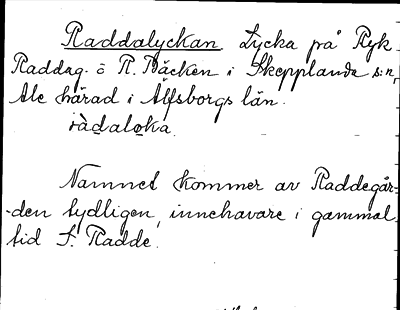 Raddalyckan Lycka på Ryk
Raddag. o R. Bäcken i Skepplanda s:n,
Ale härad i Älfsborgs län.
ràdaløka
Namnet kommer av Raddegår-
-den tydligen, innehavare i gammal
tid S. Radde.